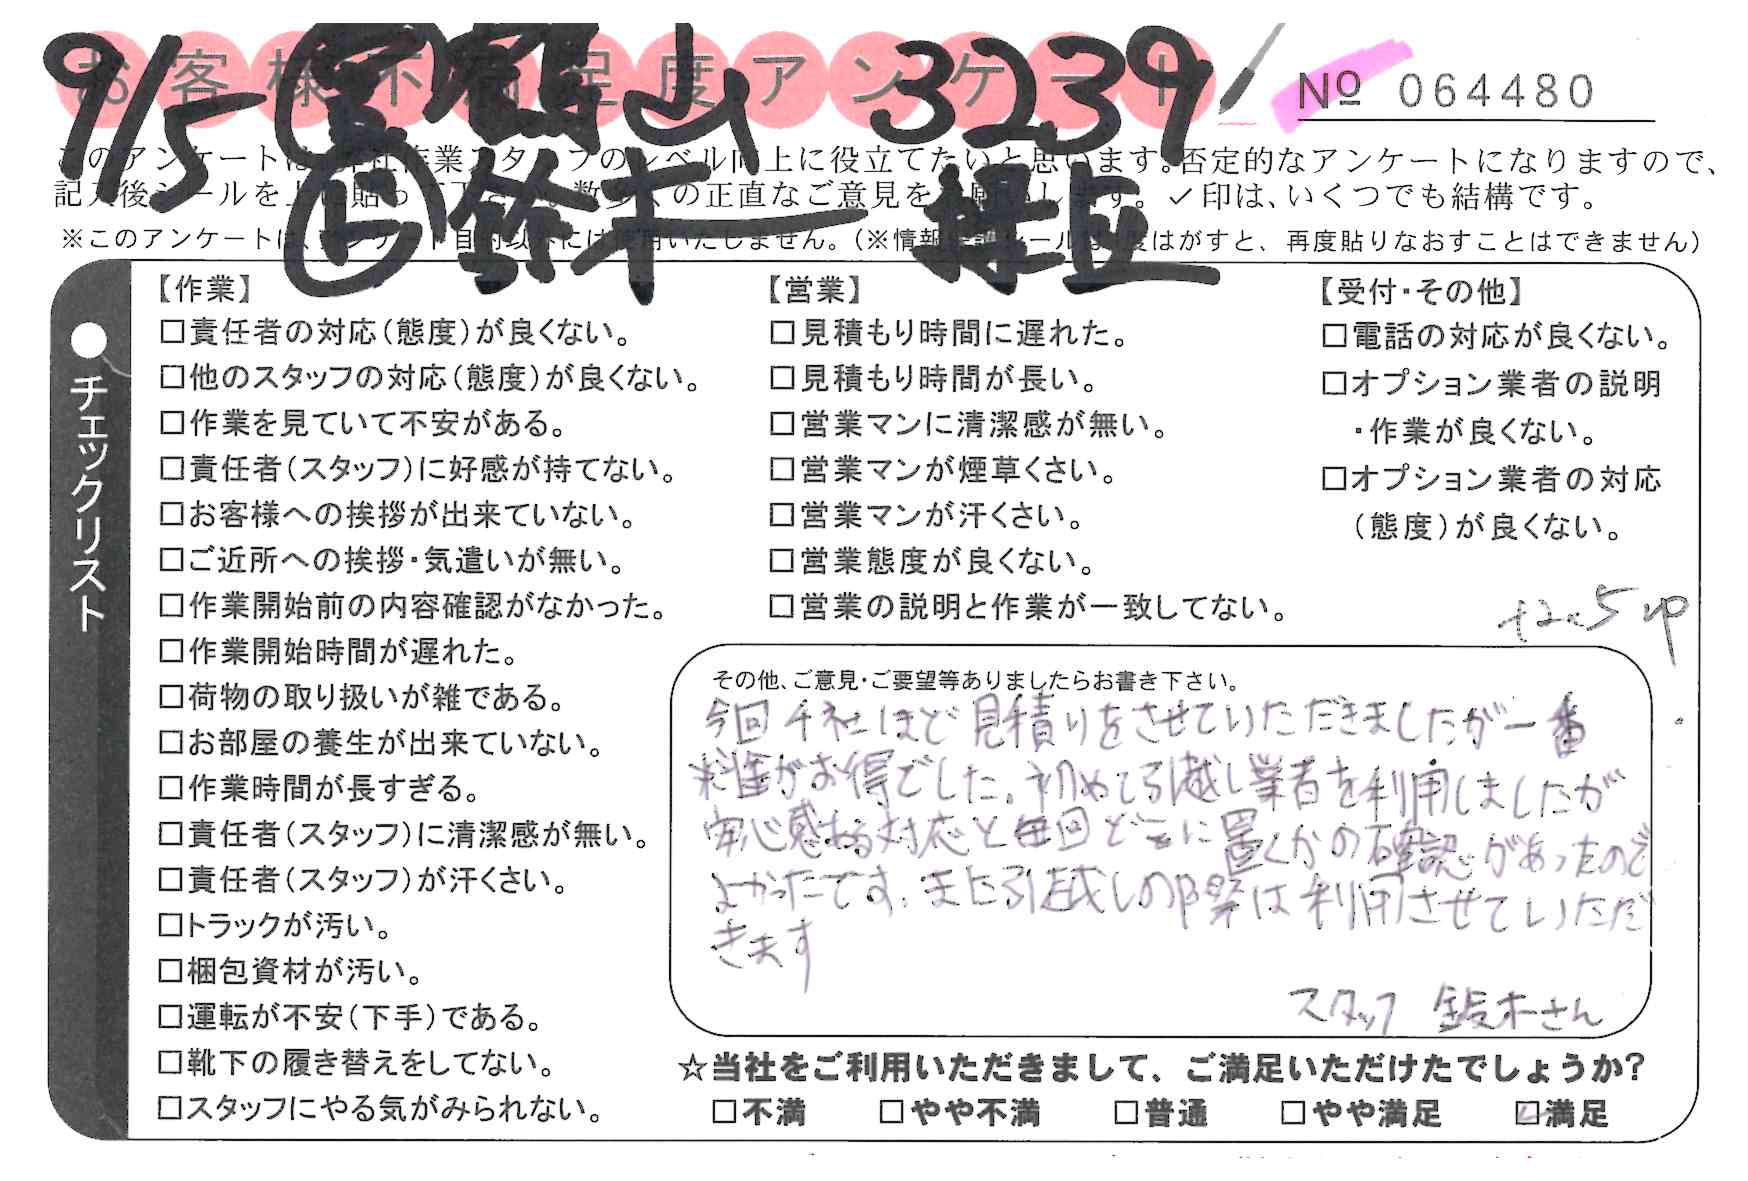 お客様不満足度アンケート
No 064480
9/5 山 3239
上 鈴木
このアンケートは 作業スタッフのレベル向上に役立てたいと思います。否定的なアンケートになりますので、
記入後シールを上 数多くの正直なご意見を します。✓印は、いくつでも結構です。
※このアンケートは、アンケート目的以外には使用いたしません。(※情報 シール 度はがすと、再度貼りなおすことはできません)
●チェックリスト
【作業】
□責任者の対応(態度)が良くない。
□他のスタッフの対応(態度)が良くない。
□作業を見ていて不安がある。
□責任者(スタッフ)に好感が持てない。
□お客様への挨拶が出来ていない。
□ご近所への挨拶・気遣いが無い。
□作業開始前の内容確認がなかった。
□作業開始時間が遅れた。
□荷物の取り扱いが雑である。
□お部屋の養生が出来ていない。
□作業時間が長すぎる。
□責任者(スタッフ)に清潔感が無い。
□責任者(スタッフ)が汗くさい。
□トラックが汚い。
□梱包資材が汚い。
□運転が不安(下手)である。
□靴下の履き替えをしてない。
□スタッフにやる気がみられない。
【営業】
□見積もり時間に遅れた。
□見積もり時間が長い。
□営業マンに清潔感が無い。
□営業マンが煙草くさい。
□営業マンが汗くさい。
□営業態度が良くない。
□営業の説明と作業が一致してない。
【受付・その他】
□電話の対応が良くない。
□オプション業者の説明
・作業が良くない。
□オプション業者の対応
(態度)が良くない。
その他、ご意見・ご要望等ありましたらお書き下さい。
今回 社ほど見積りをさせていただきましたが一番
料金がお得でした。初めて引越し業者を利用しましたが
安心感ある対応と毎回どこに置くかの確認があったので
よかったです。また引越しの際は利用させていただ
きます
スタッフ 鈴木さん
☆当社をご利用いただきまして、ご満足いただけたでしょうか?
□不満 □やや不満 □普通 □やや満足 ☑満足